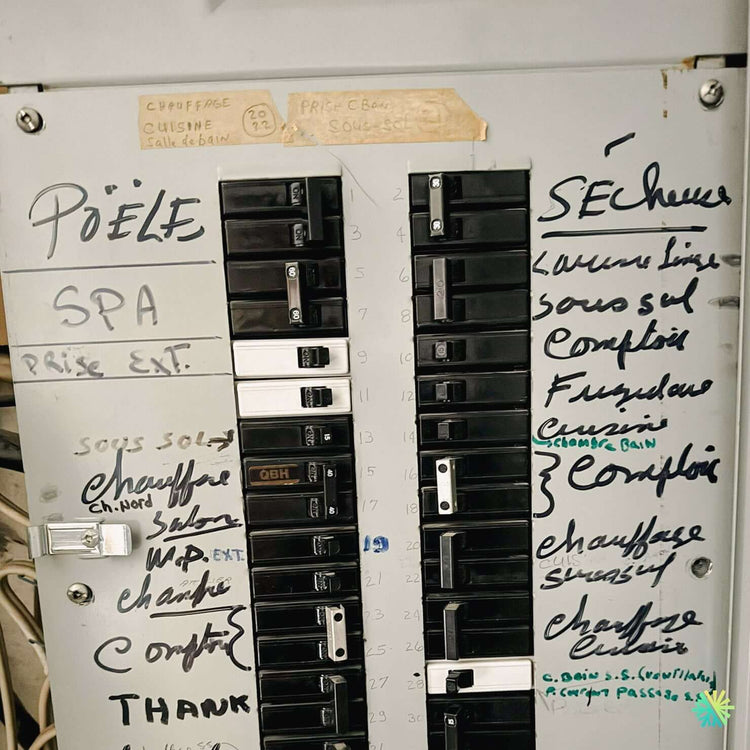 CHAUFFAGE
CUISINE
Salle de bain
20
22
PRISE C BAIN
SOUS-SOL
PÖELE
SPA
PRISE EXT.
SOUS SOL
Chauffage
Ch. Nord
Salon
W.P. EXT.
Chambre
Comptoir
THANK
1
3
5
7
9
11
13
15
17
19
21
23
25
27
29
60
60
15
QBH
40
40
2
4
6
8
10
12
14
16
18
20
22
24
26
28
30
SÉCheuse
Laveuse Linge
Sous sol
Comptoir
Frigidaire
Cuisine
Chambre BAIN
Comptoir
Chauffage
CUIS
Sous sol
Chauffage
Cuisine
C. BAIN S.S. (Ventilateur)
P. Passage S.S.